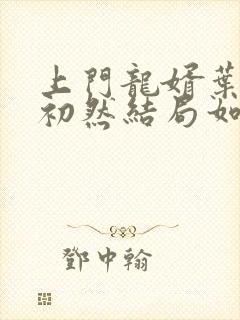 上門龍婿葉
初然結局如
鄧中翰